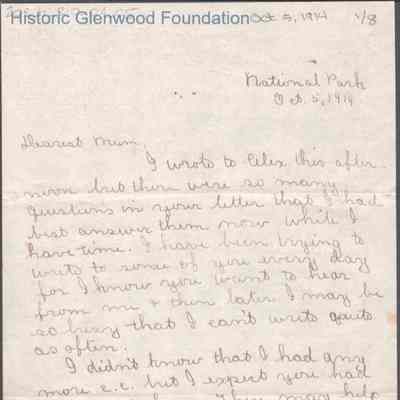 Historic Glenwood Foundation Oct 5, 1914 1/8
National Park
Oct. 5, 1914
Dearest Mum,
I wrote to Alex this after-
noon but there were so many
questions in your letter that I had
best answer them now while I
have time. I have been trying to
write to some of you every day
for I know you want to hear
from me & then later I may be
so busy that I can't write quite
as often.
I didn't know that I had any
more c.c. but I expect you had
may help